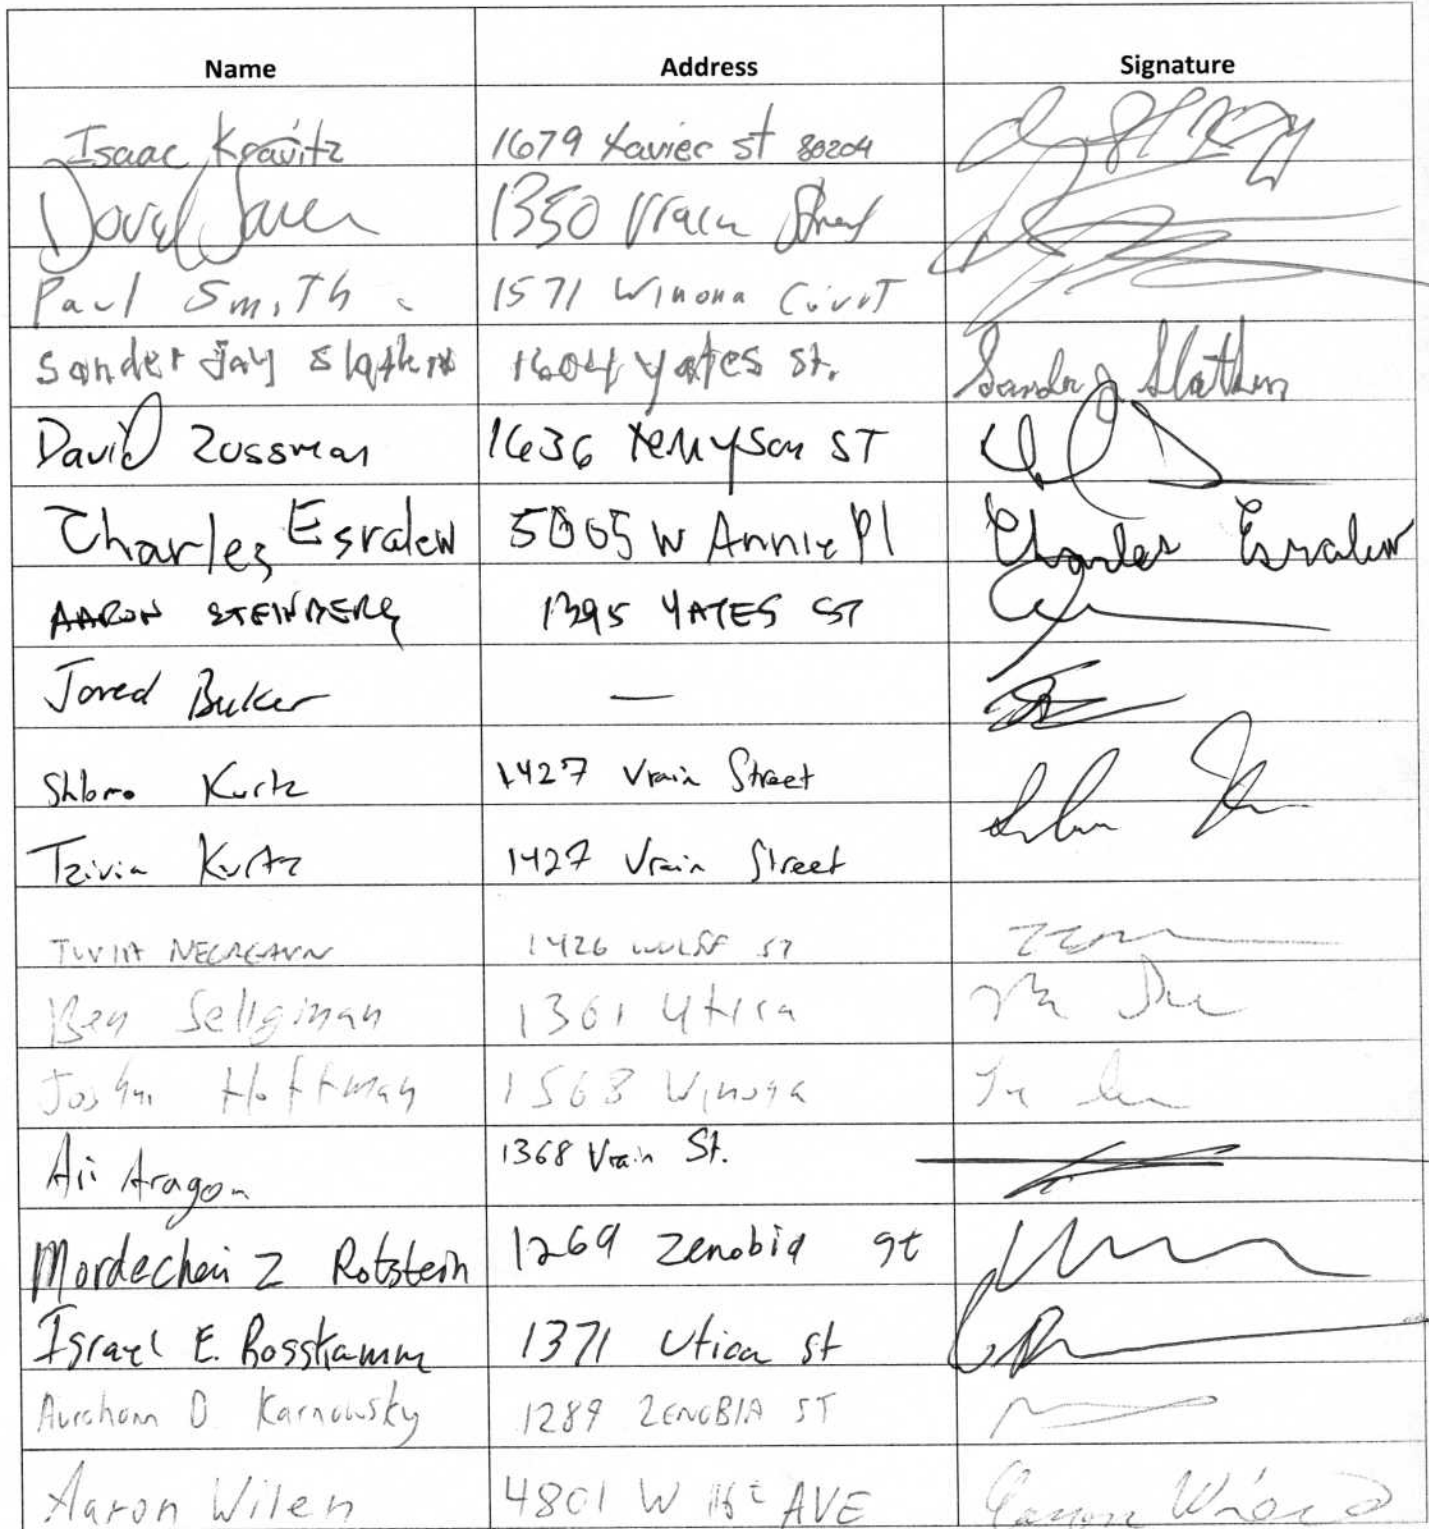 Name Address Signature
Isaac Kravitz 1679 Xavier st 80204
David 1350 Vrain Street
Paul Smith 1571 Winona Court
Sander Jay Slatkin 1604 Yates St.
David Zussman 1636 Tennyson ST
Charles Esralew 5005 W Annie Pl Charles Esralew
AARON STEINBERG 1395 YATES ST
Jared Buker —
Shlomo Kurtz 1427 Vrain Street
Tzivia Kurtz 1427 Vrain Street
TUVIA 1426 WOLFF ST
Ben Seligman 1361 Utica
Hoffman 1568 Winona
Ari Aragon 1368 Vrain St.
Mordechai Z Rotstein 1269 Zenobia st
Israel E. Rosskamm 1371 Utica st
Avraham D Karnowsky 1289 ZENOBIA ST
Aaron Wilen 4801 W 16t AVE Aaron